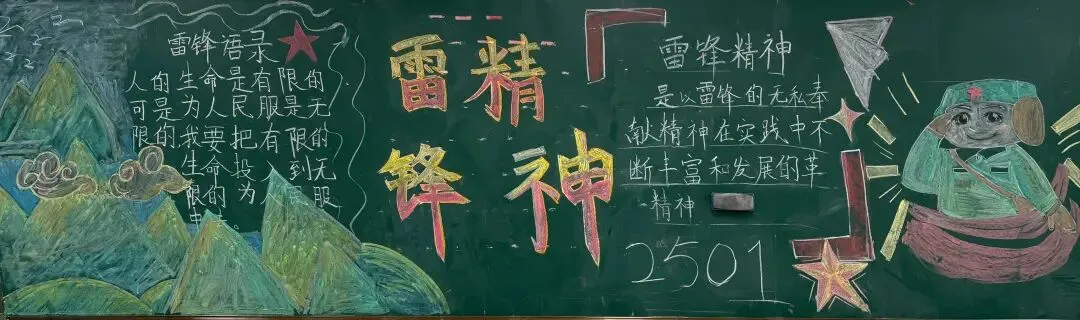 雷锋语录
人的生命是有限的
可是为人民服是无
限的我要把有限的
生命投入到无
限的为人民服
雷锋
精神
雷锋精神
是以雷锋的无私奉
献精神在实践中不
断丰富和发展的革
精神
2501